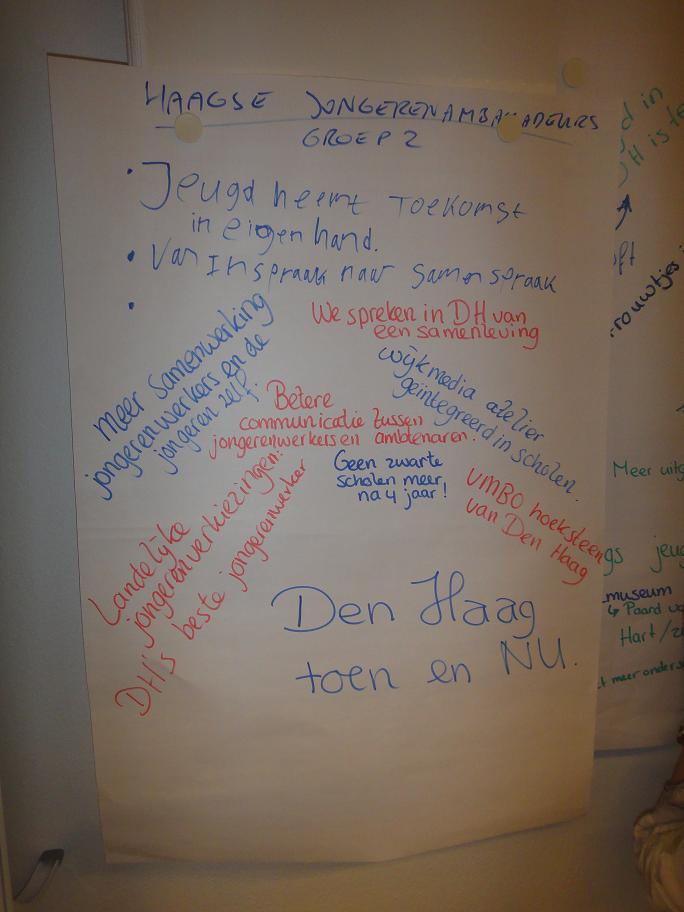 HAAGSE JONGERENAMBASSADEURS
GROEP 2
• Jeugd heemt Toekomst
in eigen hand.
• Van Inspraak naar Samenspraak
•
We spreken in DH van
een samenleving
Meer Samenwerking
jongerenwerkers en de
jongeren zelf.
wijkmedia atelier
geïntegreerd in scholen.
Betere
communicatie tussen
jongerenwerkers en ambtenaren.
Geen zwarte
scholen meer,
na 4 jaar!
VMBO hoeksteen
van Den Haag
Landelijke
jongerenverkiezingen:
DH's beste jongerenwerker
Den Haag
toen en NU.
d in
H is te
rouwtjes
Meer uitg
gs jeug
museum
↳ Paard va
Hart/
t meer onders